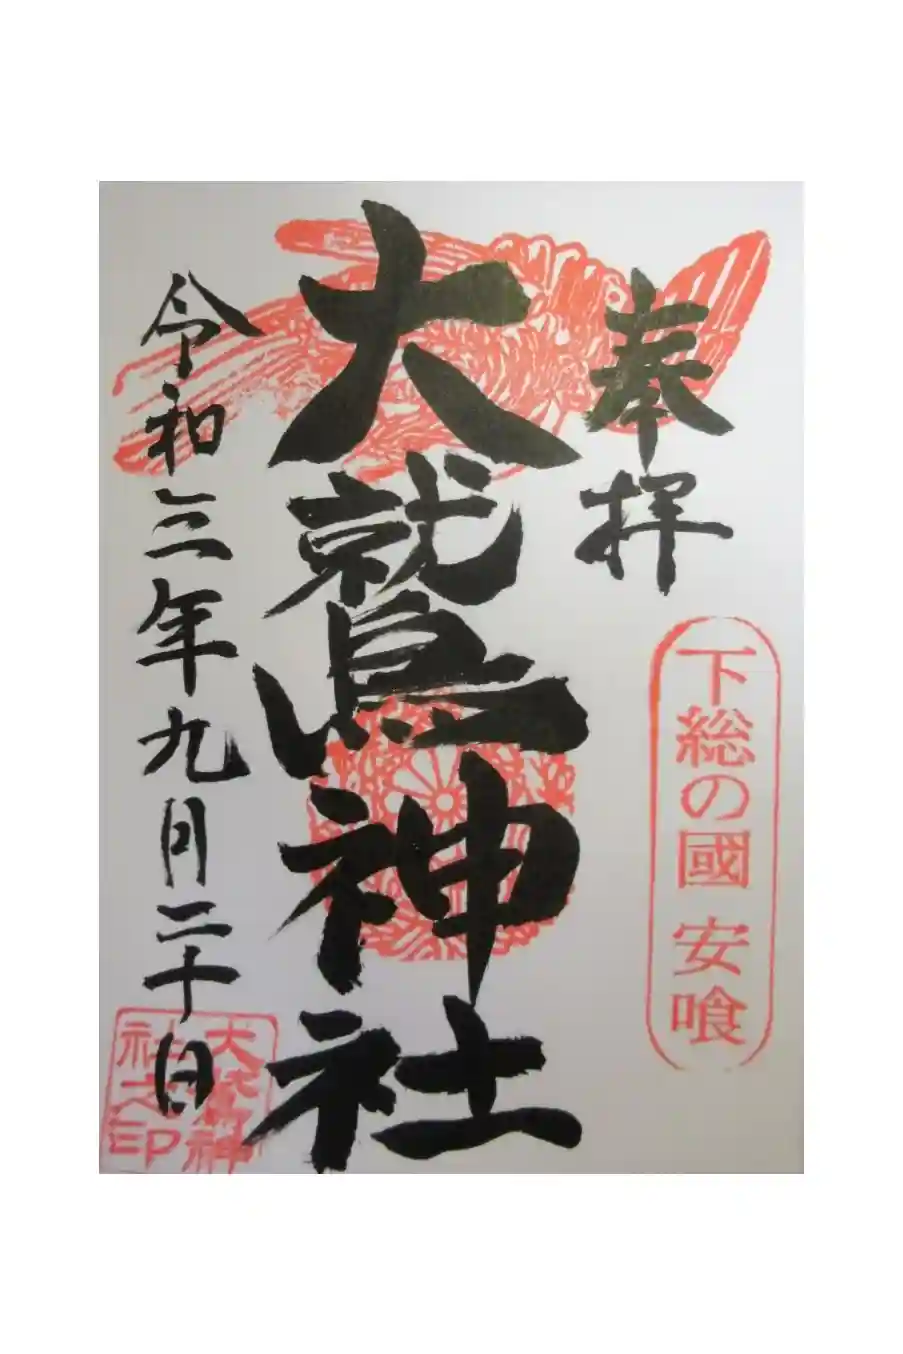 奉拝
下総の國 安喰
大鷲神社
令和三年九月二十日
大鷲神
社之印